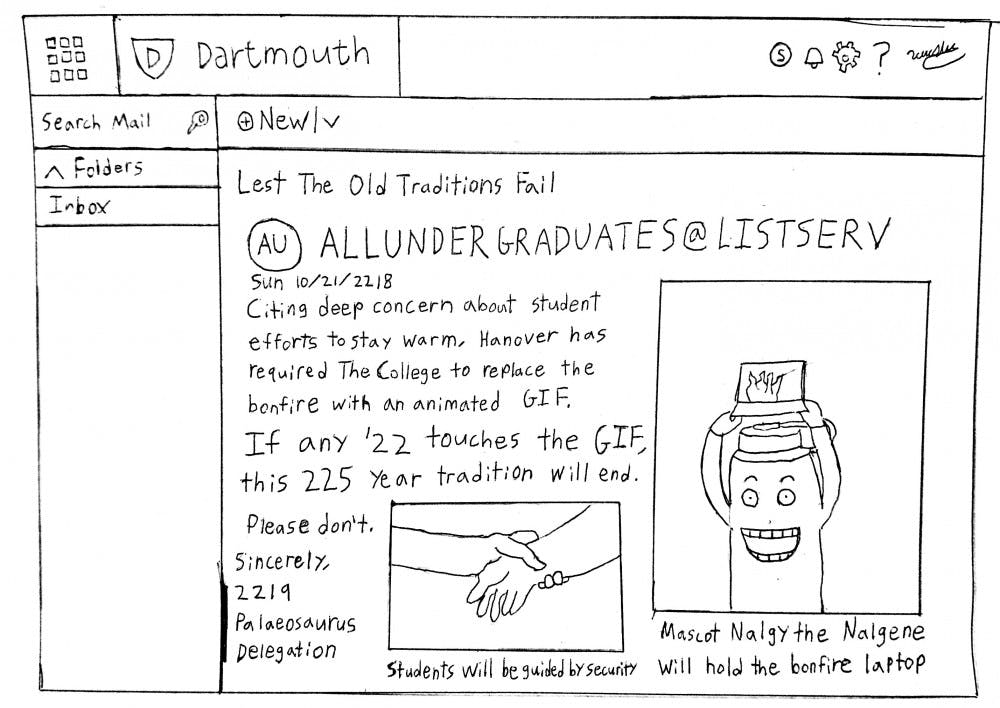 D Dartmouth
S ?
Search Mail
⊕ New | v
^ Folders
Inbox
Lest The Old Traditions Fail
AU ALLUNDERGRADUATES@LISTSERV
Sun 10/21/2218
Citing deep concern about student
efforts to stay warm, Hanover has
required The College to replace the
bonfire with an animated GIF.
If any '22 touches the GIF,
this 225 year tradition will end.
Please don't.
Sincerely,
2219
Palaeosaurus
Delegation
Students will be guided by security
Mascot Nalgy the Nalgene
will hold the bonfire laptop